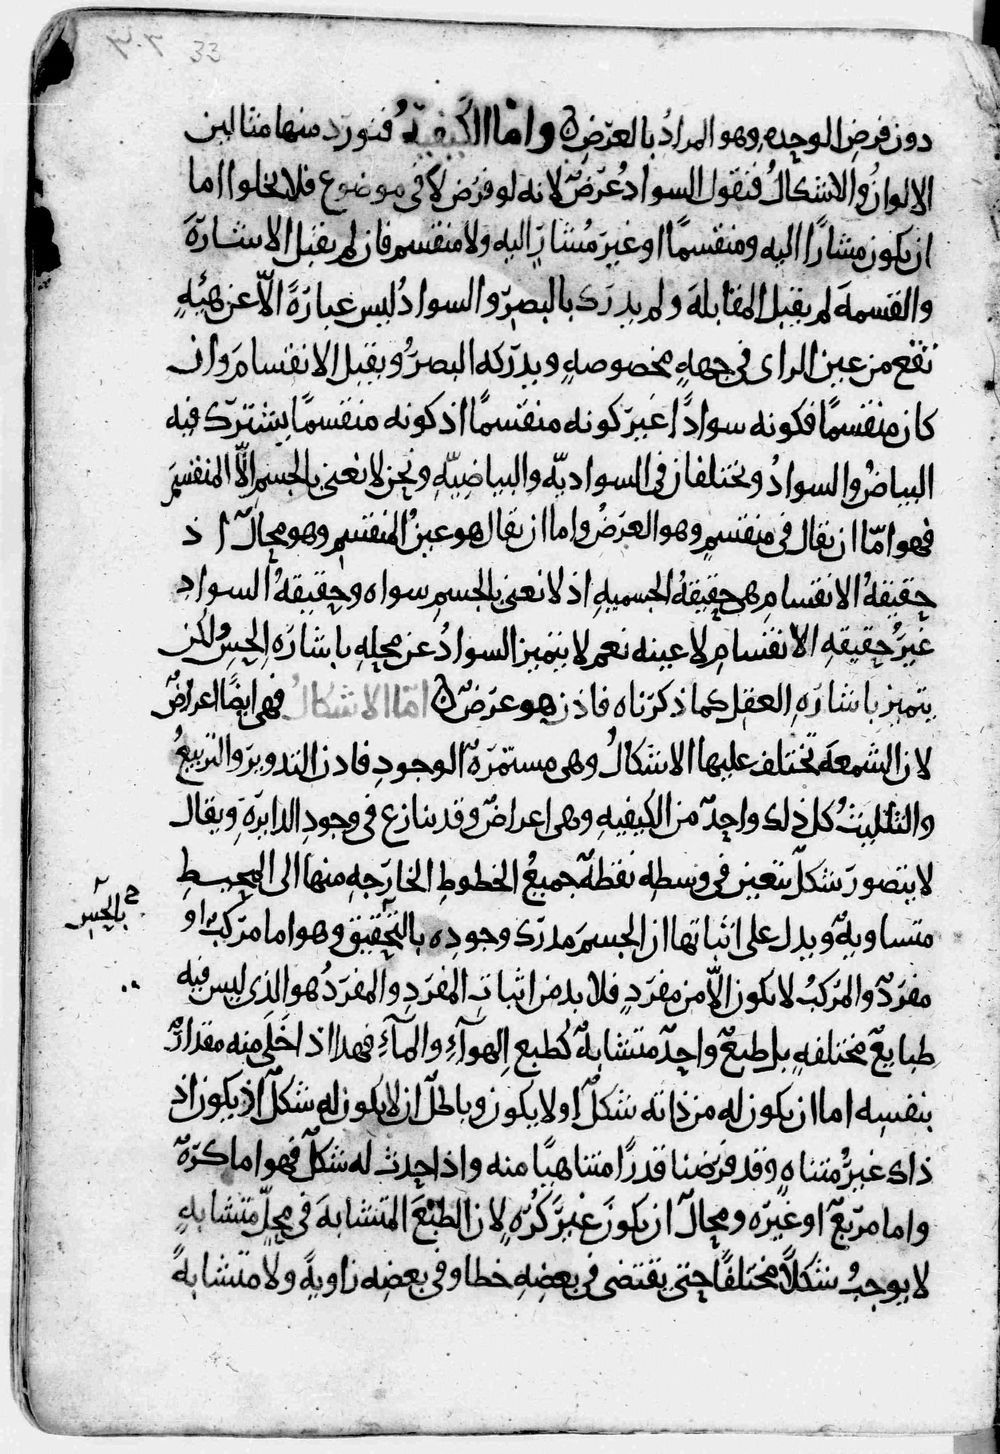 ٣٠٣ 33
دون فرض الوحده وهو المرادُ بالعرَضِ ۞ وامّا الكيفيّةُ فنورد منها مثالين
الالوانُ والاشكالُ فنقول السوادُ عَرَضٌ لانه لو فرَض لا في موضوع فلا يخلوا اما
ان يكون مشارًا اليه ومنقسمًا او غيرَ مُشارٍ اليه ولا منقسم فان لم يقبل الاشارَة
والقسمة لم يقبل المقابلة ولم يدرَك بالبصرَ والسوادُ ليس عبارَةً الّا عن هيئهٍ
تقع من عين الراى في جهةٍ مخصوصهٍ ويدرَكه البصرُ ويقبل الانقسامَ وان
كان منقسمًا فكونه سوادًا غيرَ كونه منقسمًا اذ كونه منقسمًا يشترَك فيه
البياضُ والسوادُ ويختلفان في السواديّه والبياضِيّهِ ونحن لا نعنى بالجسمِ الّا المنقسمَ
فهو امّا ان يقال في منقسمٍ وهو العرَضُ واما ان يقال هو عينُ المنقسمِ وهو محالٌ اذ
حقيقةُ الانقسامِ هى حقيقةُ الجسميهِ اذ لا نعنى بالجسمِ سواه وحقيقهُ السوادِ
غيرُ حقيقهِ الانقسامِ لا عينه نعم لا يتميز السوادُ عن محله باشارَه الحِسِ ولكن
يتميز باشارَهِ العقل كما ذكرَناه فاذن هو عرَضٌ ۞ امّا الاشكالُ فهى ايضًا اعراضٌ
لان الشمعهَ تختلف عليها الاشكالُ وهى مستمرَةُ الوجودِ فاذن التدويرَ والتربيعُ
والتثليثُ كل ذلك واحدٌ من الكيفيهِ وهى اعراضٌ وقد ينازع في وجودِ الدايرَةَ ويقال
لا يتصورَ شكلٌ يتعين في وسطه نقطهٌ جميعُ الخطوطِ الخارَجهِ منها الى المحيطِ
متساويهٌ ويدل على اثباتها ان الجسمَ مدرَك وجودِه بالتحقيق وهو اما مرَكبٌ او
بالحِس
مفرَدٌ والمرَكبُ لا يكون الّا من مفرَدٍ فلا بد من اثباتِ المفرَدِ والمفرَدُ هو الذى ليس فيه
طبايعٌ مختلفهٍ بل طبعٌ واحدٌ متشابهٌ كطبع الهوآءِ والمآءِ فهذا اذا خَلى منه مقدارٌ
بنفسِه اما ان يكون له من ذاته شكلٌ او لا يكون وباطلٌ ان لا يكون له شكلٌ اذ يكون اذ
ذاك غيرُ متناهٍ وقد فرَضنا قدرًا متناهيًا منه واذا حدث له شكلٌ فهو اما كرَةٌ
واما مربعٌ او غيرَه ومحالٌ ان يكونَ غيرَ كُرَهٍ لان الطبْعَ المتشابهَ في محِلٍّ متشابهٍ
لا يوجِبُ شكلًا مختلفًا حتى يقتضى في بعضِهِ خطا وفي بعضِه زاويهً ولا متشابهً